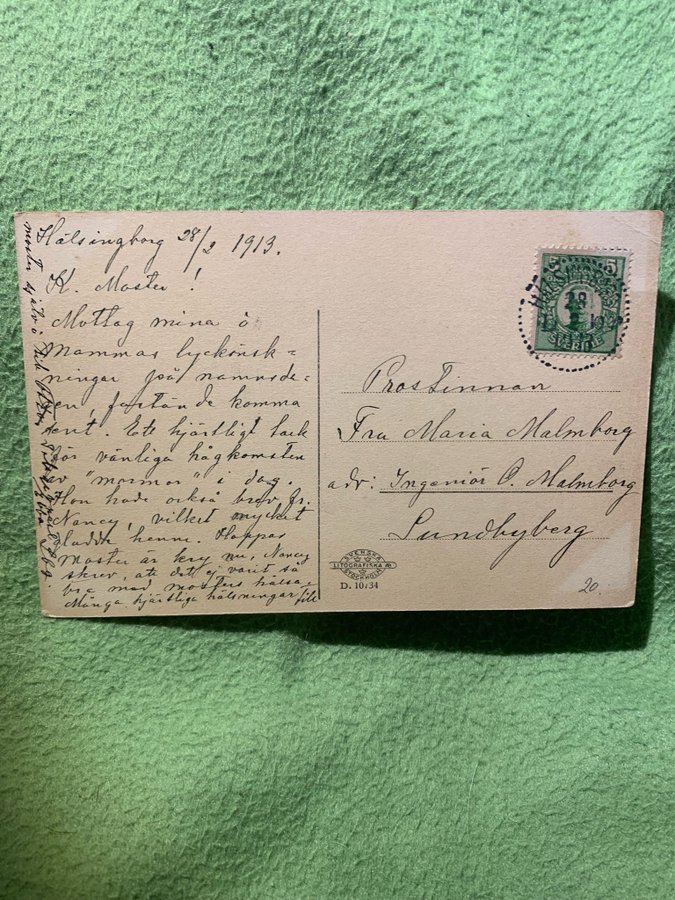 Hälsingborg 28/2 1913.
K. Moster!
Mottag mina o
Mammas lyckönsk-
ningar på namnsda-
gen, fastän de komma
sent. Ett hjärtligt tack
för vänliga hågkomsten
av "mormor" i dag.
Hon hade också brev fr.
Nancy, vilket mycket
gladde henne. Hoppas
Moster är kry nu, Nancy
skrev, att det ej varit så
bra med mosters hälsa.
Många hjärtliga hälsningar till
moster själv
Prostinnan
Fru Maria Malmborg
adr: Ingeniör O. Malmborg
Sundbyberg
5
SVERIGE
28
SVENSKA
LITOGRAFISKA AB
STOCKHOLM
D. 10734
20.